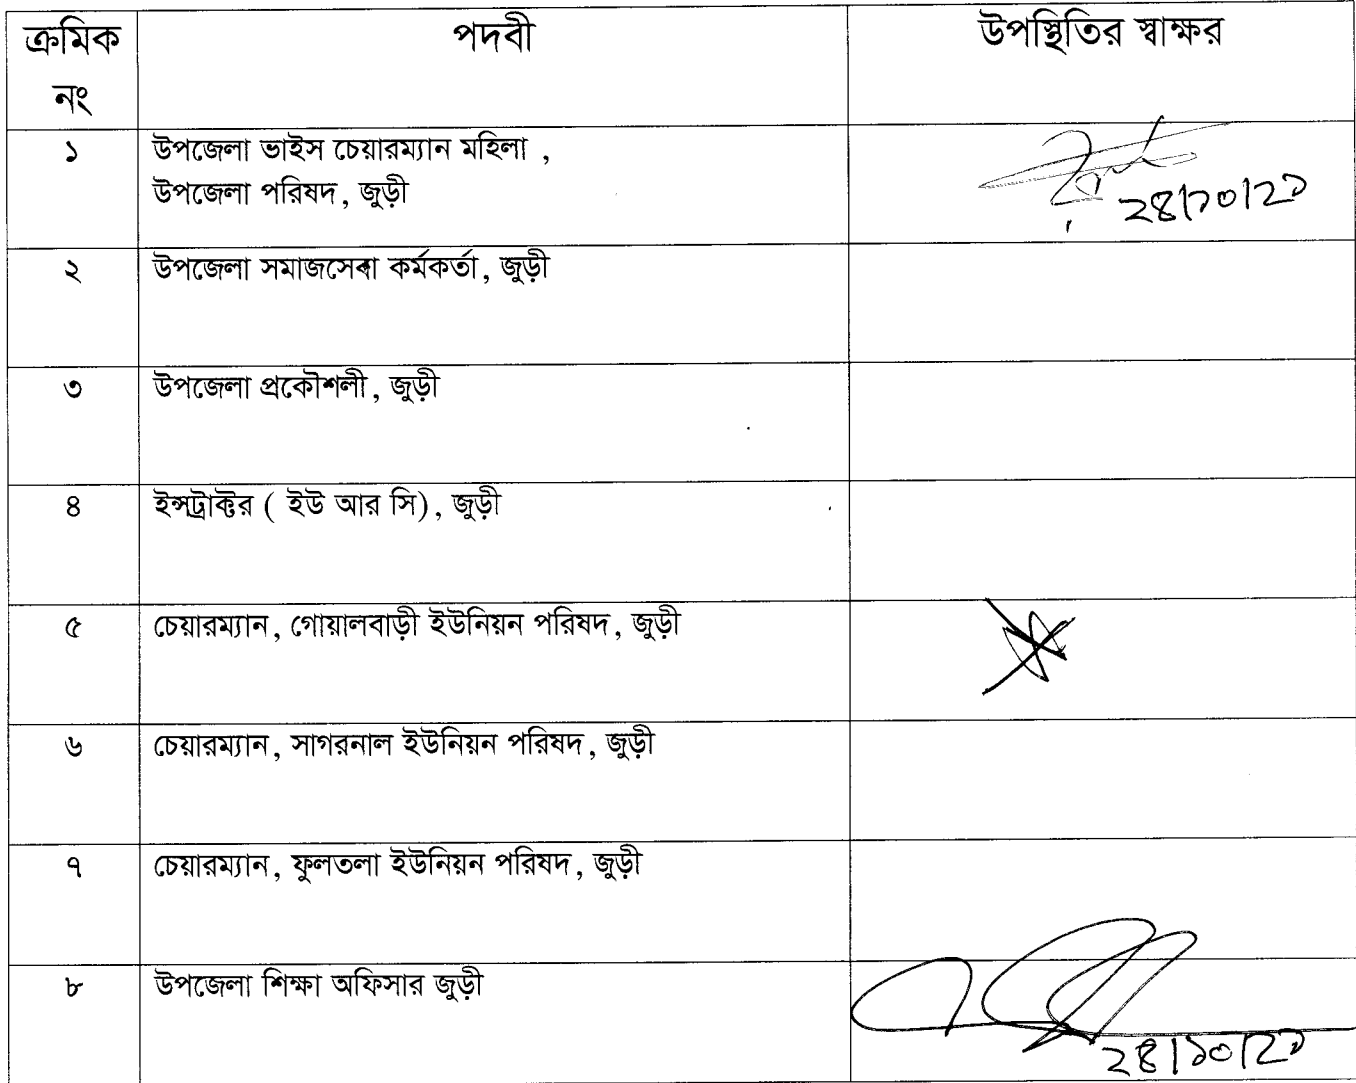 ক্রমিক নং পদবী উপস্থিতির স্বাক্ষর
১ উপজেলা ভাইস চেয়ারম্যান মহিলা ,
উপজেলা পরিষদ, জুড়ী
২ উপজেলা সমাজসেবা কর্মকর্তা, জুড়ী
৩ উপজেলা প্রকৌশলী, জুড়ী
৪ ইন্সট্রাক্টর ( ইউ আর সি), জুড়ী
৫ চেয়ারম্যান, গোয়ালবাড়ী ইউনিয়ন পরিষদ, জুড়ী
৬ চেয়ারম্যান, সাগরনাল ইউনিয়ন পরিষদ, জুড়ী
৭ চেয়ারম্যান, ফুলতলা ইউনিয়ন পরিষদ, জুড়ী
৮ উপজেলা শিক্ষা অফিসার জুড়ী